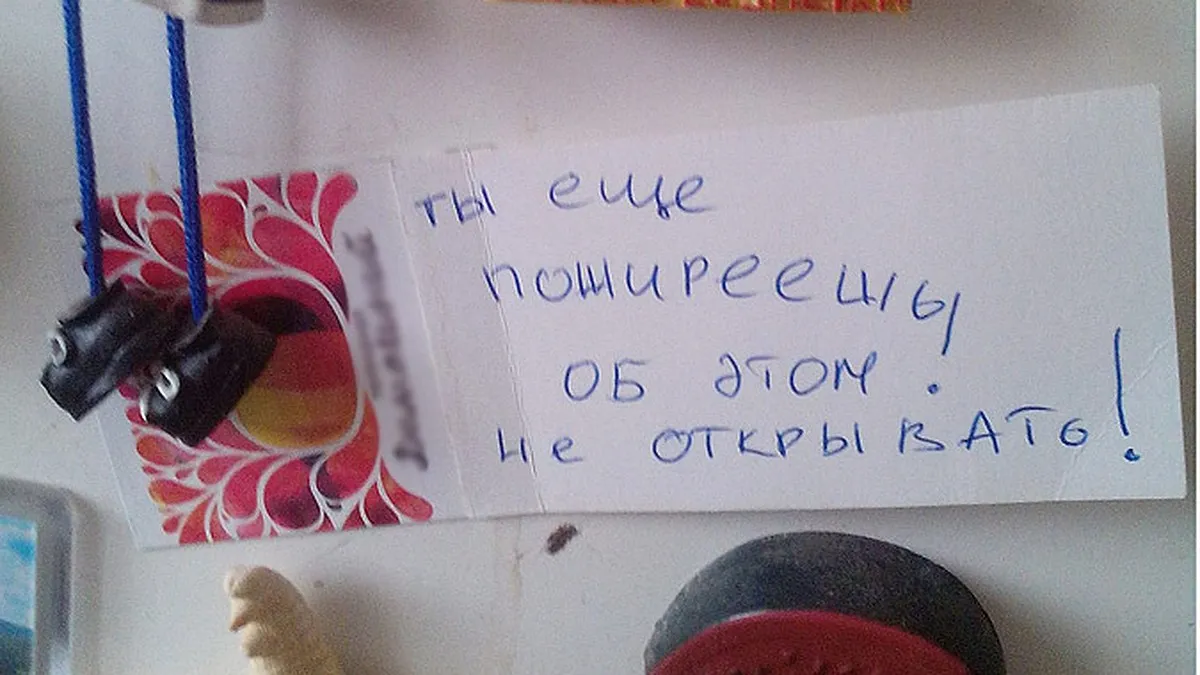 ты еще
пожиреешь
об этом!
не открывать!